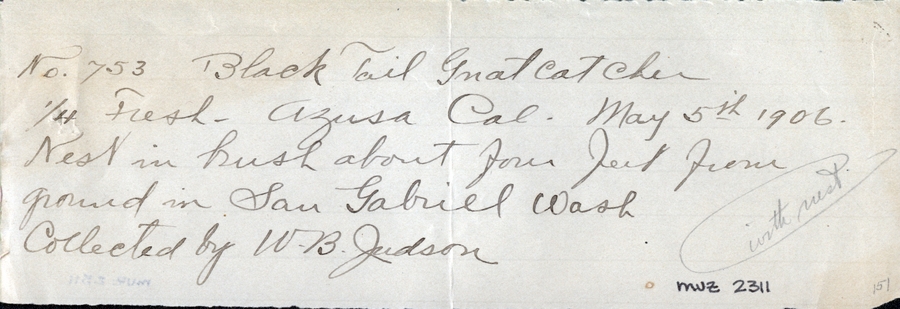 No. 753 Black Tail Gnatcatcher
1/4 Fresh - Azusa Cal. May 5th 1906.
Nest in bush about four feet from
ground in San Gabriel Wash
with nest.
Collected by W. B. Judson
MVZ 2311
151